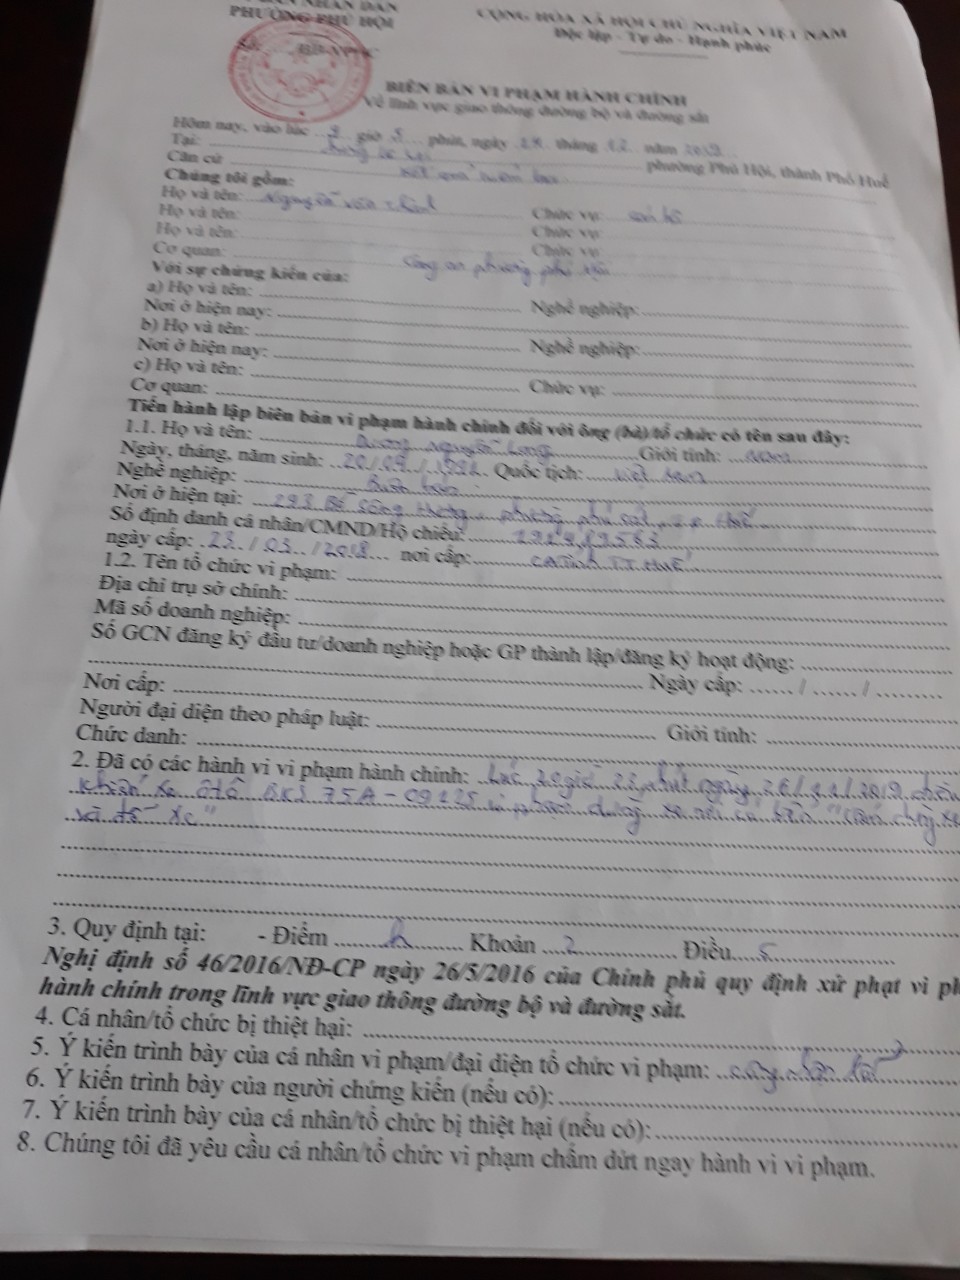 PHƯỜNG PHÚ HỘI
CỘNG HÒA XÃ HỘI CHỦ NGHĨA VIỆT NAM
Độc lập - Tự do - Hạnh phúc
BIÊN BẢN VI PHẠM HÀNH CHÍNH
Về lĩnh vực giao thông đường bộ và đường sắt
Hôm nay, vào lúc 9 giờ 5 phút, ngày tháng 12 năm 2019
Tại: phường Phú Hội, thành Phố Huế
Căn cứ
Chúng tôi gồm:
Họ và tên: Nguyễn Văn Chức vụ: cán bộ
Họ và tên: Chức vụ:
Họ và tên: Chức vụ:
Cơ quan: Công an phường phú Hội
Với sự chứng kiến của:
a) Họ và tên: Nghề nghiệp:
Nơi ở hiện nay:
b) Họ và tên: Nghề nghiệp:
Nơi ở hiện nay:
c) Họ và tên: Chức vụ:
Cơ quan:
Tiến hành lập biên bản vi phạm hành chính đối với ông (bà)/tổ chức có tên sau đây:
1.1. Họ và tên: Dương Nguyễn Long Giới tính: Nam
Ngày, tháng, năm sinh: 20/09/ Quốc tịch: Việt Nam
Nghề nghiệp: Buôn bán
Nơi ở hiện tại: 293 phường phú
Số định danh cá nhân/CMND/Hộ chiếu:
ngày cấp: 23/03/2018 nơi cấp: CA Tỉnh TT Huế
1.2. Tên tổ chức vi phạm:
Địa chỉ trụ sở chính:
Mã số doanh nghiệp:
Số GCN đăng ký đầu tư/doanh nghiệp hoặc GP thành lập/đăng ký hoạt động:
Ngày cấp: ...... / ...... / .........
Nơi cấp:
Người đại diện theo pháp luật: Giới tính:
Chức danh:
2. Đã có các hành vi vi phạm hành chính: Lúc 20 giờ 23 phút ngày 26/11/2019 điều
khiển xe ôtô BKS 75A - 09225 vi phạm dừng xe nơi có biển "cấm dừng xe
và đỗ xe"
3. Quy định tại: - Điểm h Khoản 2 Điều 5
Nghị định số 46/2016/NĐ-CP ngày 26/5/2016 của Chính phủ quy định xử phạt vi ph
hành chính trong lĩnh vực giao thông đường bộ và đường sắt.
4. Cá nhân/tổ chức bị thiệt hại:
5. Ý kiến trình bày của cá nhân vi phạm/đại diện tổ chức vi phạm:
6. Ý kiến trình bày của người chứng kiến (nếu có):
7. Ý kiến trình bày của cá nhân/tổ chức bị thiệt hại (nếu có):
8. Chúng tôi đã yêu cầu cá nhân/tổ chức vi phạm chấm dứt ngay hành vi vi phạm.